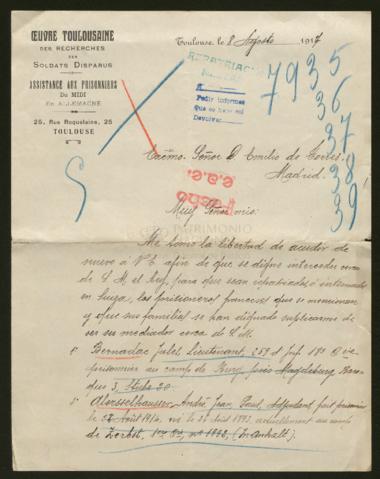 ŒUVRE TOULOUSAINE
DES RECHERCHES
DES
SOLDATS DISPARUS
ASSISTANCE AUX PRISONNIERS
DU MIDI
EN ALLEMAGNE
25, Rue Roquelaine, 25
TOULOUSE
Toulouse, le 8 Agosto 1917
REPATRIACIÓN
A
Pedir informes
Que se hace así
Devolver
7935
36
37
38
39
Excmo. Señor D. Emilio de Torres.
Madrid.
Muy Señor mío:
Me tomo la libertad de acudir de
nuevo a V. E. afin de que se digne interceder cerca
de S. M. el Rey, para que sean repatriados o internados
en Suiza, los prisioneros franceses que se mencionan
y que sus familias se han dignado suplicarme de
ser su mediador cerca de S. M.
Bernadac Jules, Lieutenant, 259 d'Inf. 18e Cie
prisonnier au camp de Burg, près Magdeburg Bara
que 3, Stube 20.
André, Jean, Paul, Adjudant fait prisonnier
le 22 Août 1914, né le 26 Août 1893, actuellement au camp
de Zerbst, (In Anhalt).